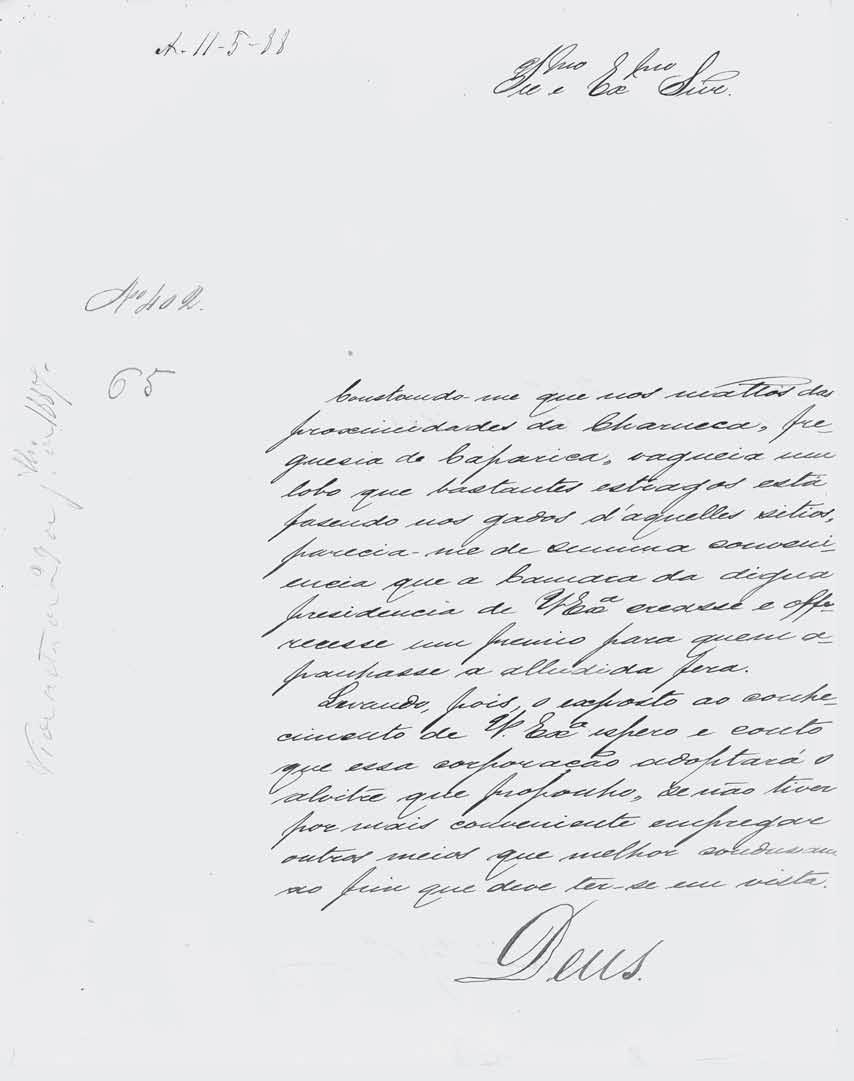 A. 11-5-88
Illmo e Exmo Snr.
Nº 402.
65
Constando-me que nos mattos das
proximidades da Charneca, fre-
guesia de Caparica, vagueia um
lobo que bastantes estragos está
fasendo nos gados d'aquelles sitios,
parecia-me de summa conveni-
encia que a Camara da digna
presidencia de V. Exª creasse e offe-
recesse um premio para quem a-
panhasse a alludida fera.
Levando, pois, o exposto ao conhe-
cimento de V. Exª espero e conto
que essa corporação adoptará o
alvitre que proponho, se não tiver
por mais conveniente empregar
outros meios que melhor condusam
ao fim que deve ter-se em vista.
Deus.